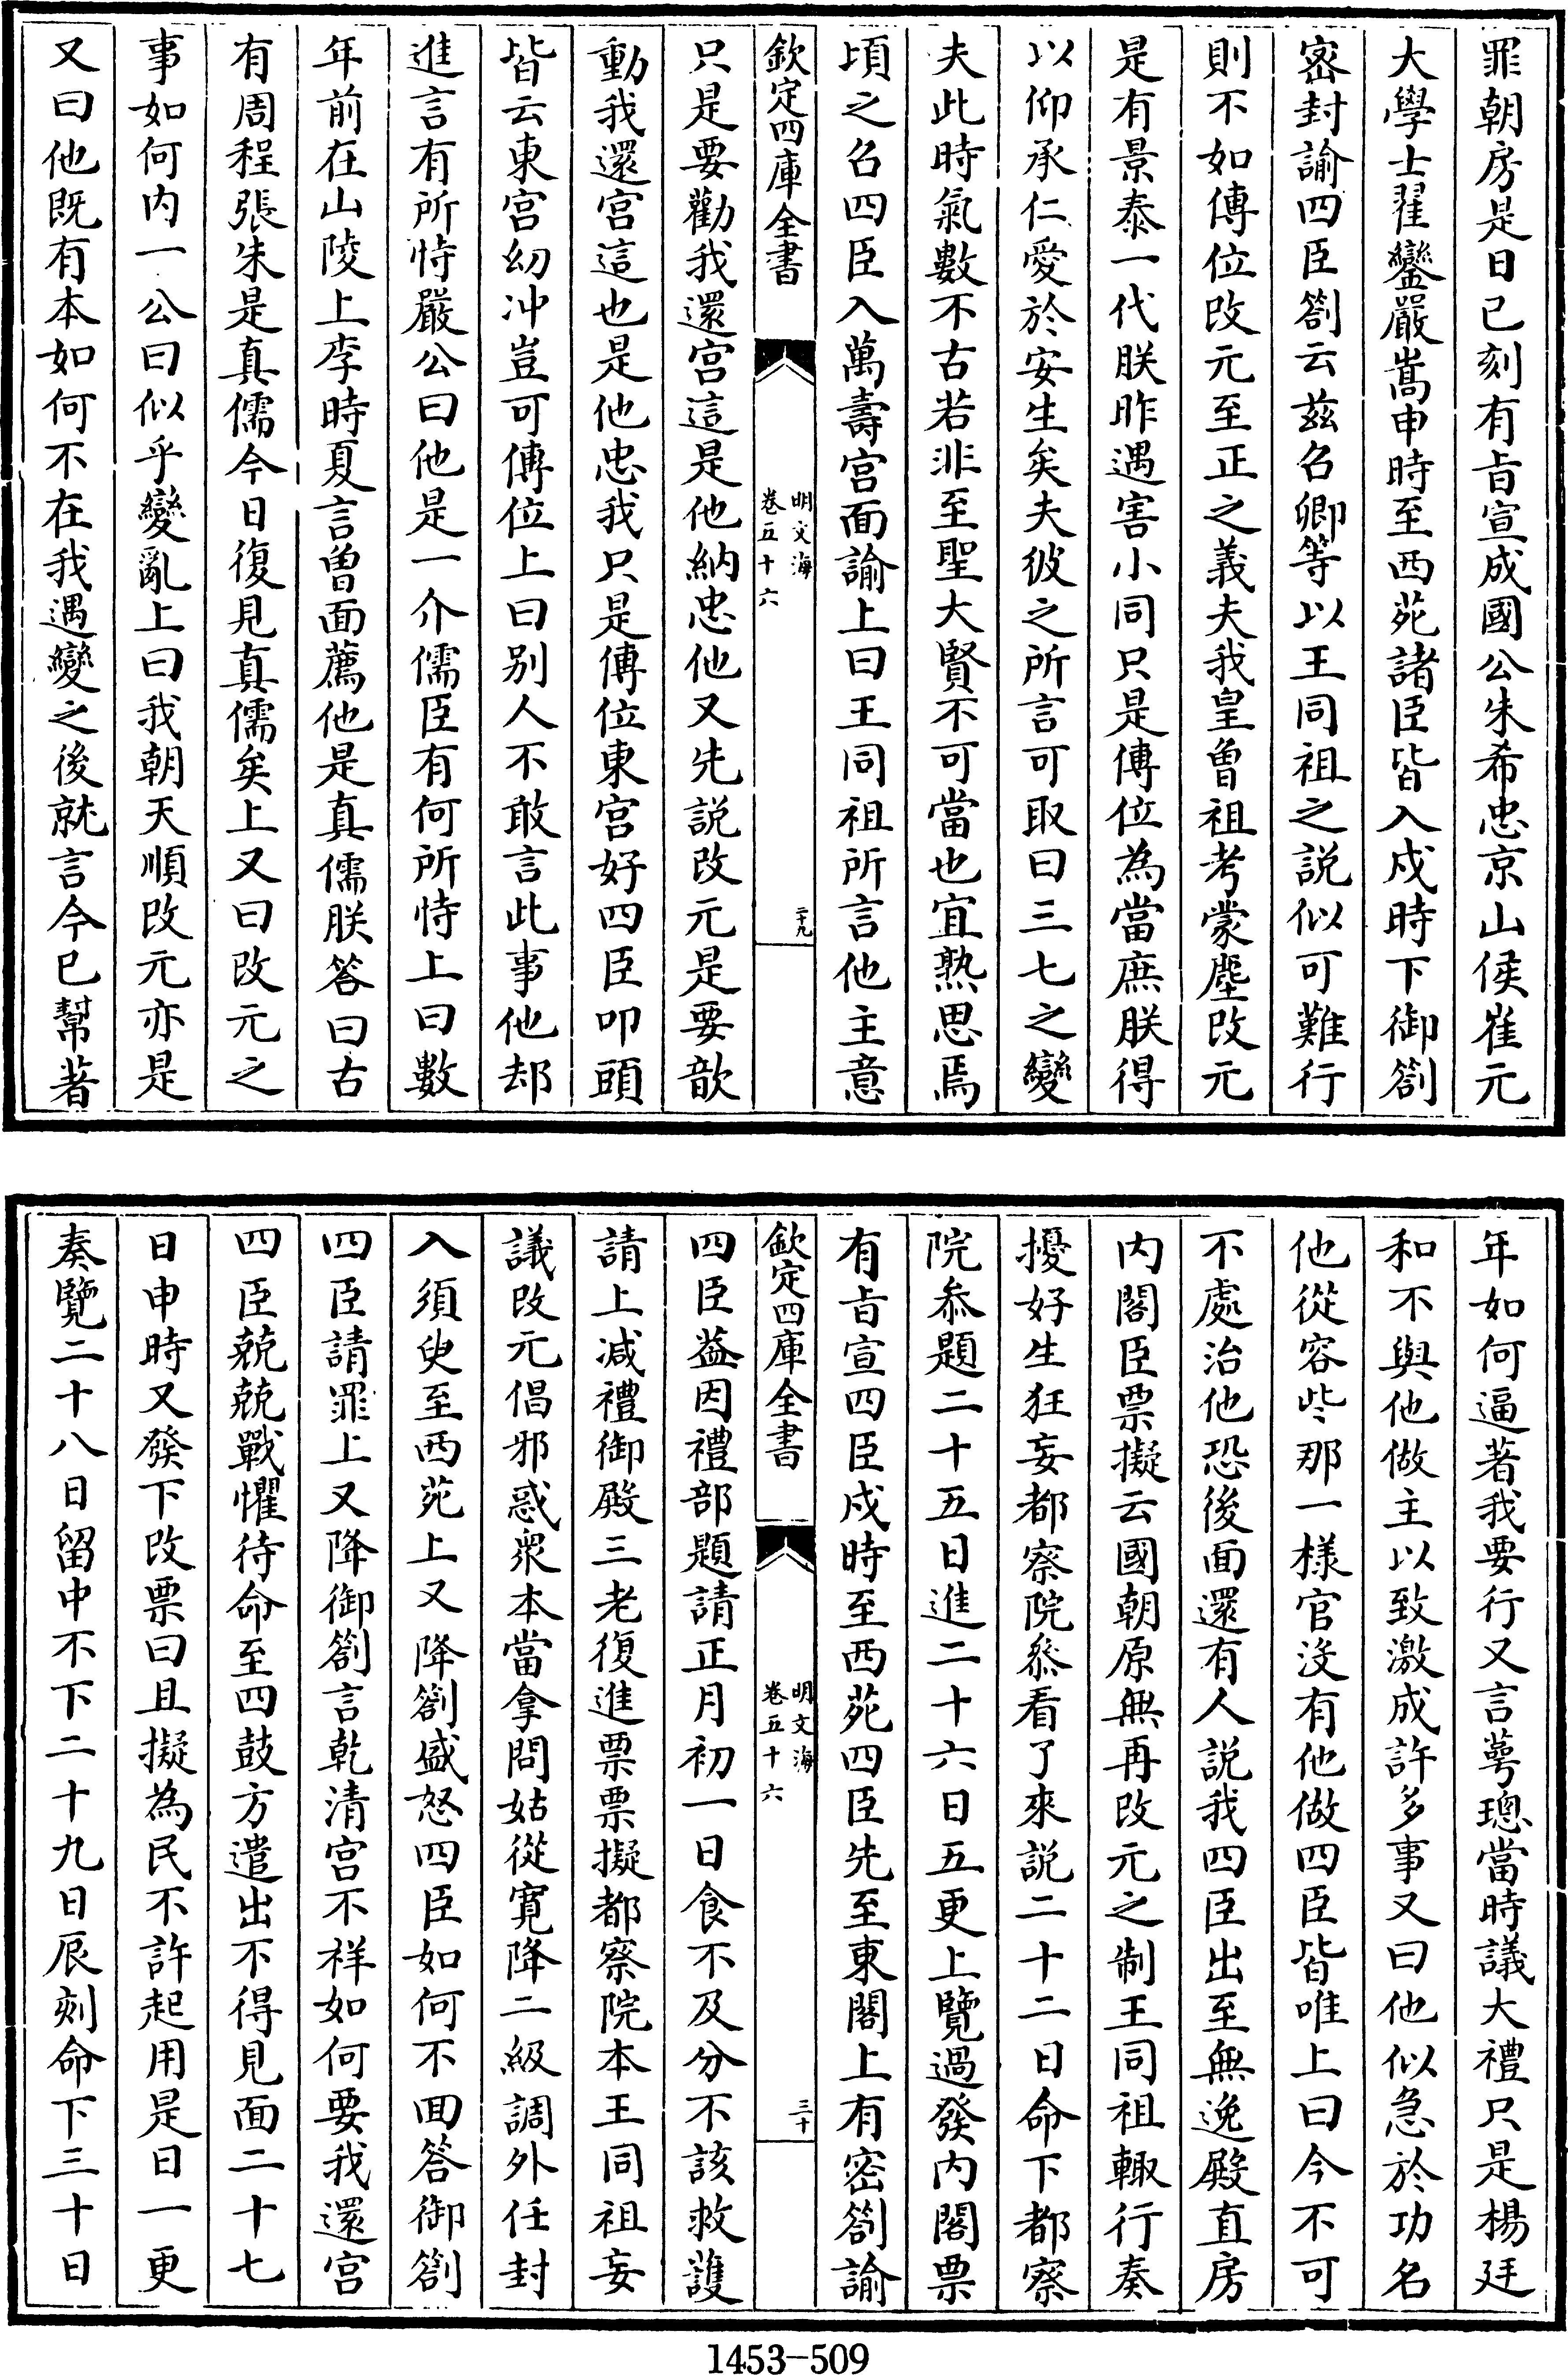 罪朝房是日已刻有旨宣成國公朱希忠京山侯崔元
大學士翟鑾嚴嵩申時至西苑諸臣皆入戌時下御劄
密封諭四臣劄云兹召卿等以王同祖之説似可難行
則不如傳位改元至正之義夫我皇曾祖考蒙塵改元
是有景泰一代朕昨遇害小同只是傳位為當庶朕得
以仰承仁愛於安生矣夫彼之所言可取曰三七之變
夫此時氣數不古若非至聖大賢不可當也宜熟思焉
頃之召四臣入萬壽宫面諭上曰王同祖所言他主意
欽定四庫全書
明文海
卷五十六
二十九
只是要勸我還宫這是他納忠他又先説改元是要歆
動我還宫這也是他忠我只是傳位東宫好四臣叩頭
皆云東宫幼冲豈可傳位上曰别人不敢言此事他却
進言有所恃嚴公曰他是一介儒臣有何所恃上曰數
年前在山陵上李時夏言曾面薦他是真儒朕答曰古
有周程張朱是真儒今日復見真儒矣上又曰改元之
事如何内一公曰似乎變亂上曰我朝天順改元亦是
又曰他既有本如何不在我遇變之後就言今已幇著
年如何逼著我要行又言蕚璁當時議大禮只是楊廷
和不與他做主以致激成許多事又曰他似急於功名
他從容些那一様官没有他做四臣皆唯上曰今不可
不處治他恐後面還有人説我四臣出至無逸殿直房
内閣臣票擬云國朝原無再改元之制王同祖輙行奏
擾好生狂妄都察院叅看了來説二十二日命下都察
院叅題二十五日進二十六日五更上覽過發内閣票
有旨宣四臣戌時至西苑四臣先至東閣上有密劄諭
欽定四庫全書
明文海
卷五十六
三十
四臣葢因禮部題請正月初一日食不及分不該救護
請上減禮御殿三老復進票票擬都察院本王同祖妄
議改元倡邪惑衆本當拿問姑從寛降二級調外任封
入須臾至西苑上又降劄盛怒四臣如何不回答御劄
四臣請罪上又降御劄言乾清宫不祥如何要我還宫
四臣兢兢戰懼待命至四鼓方遣出不得見面二十七
日申時又發下改票曰且擬為民不許起用是日一更
奏覽二十八日留中不下二十九日辰刻命下三十日
1453-509